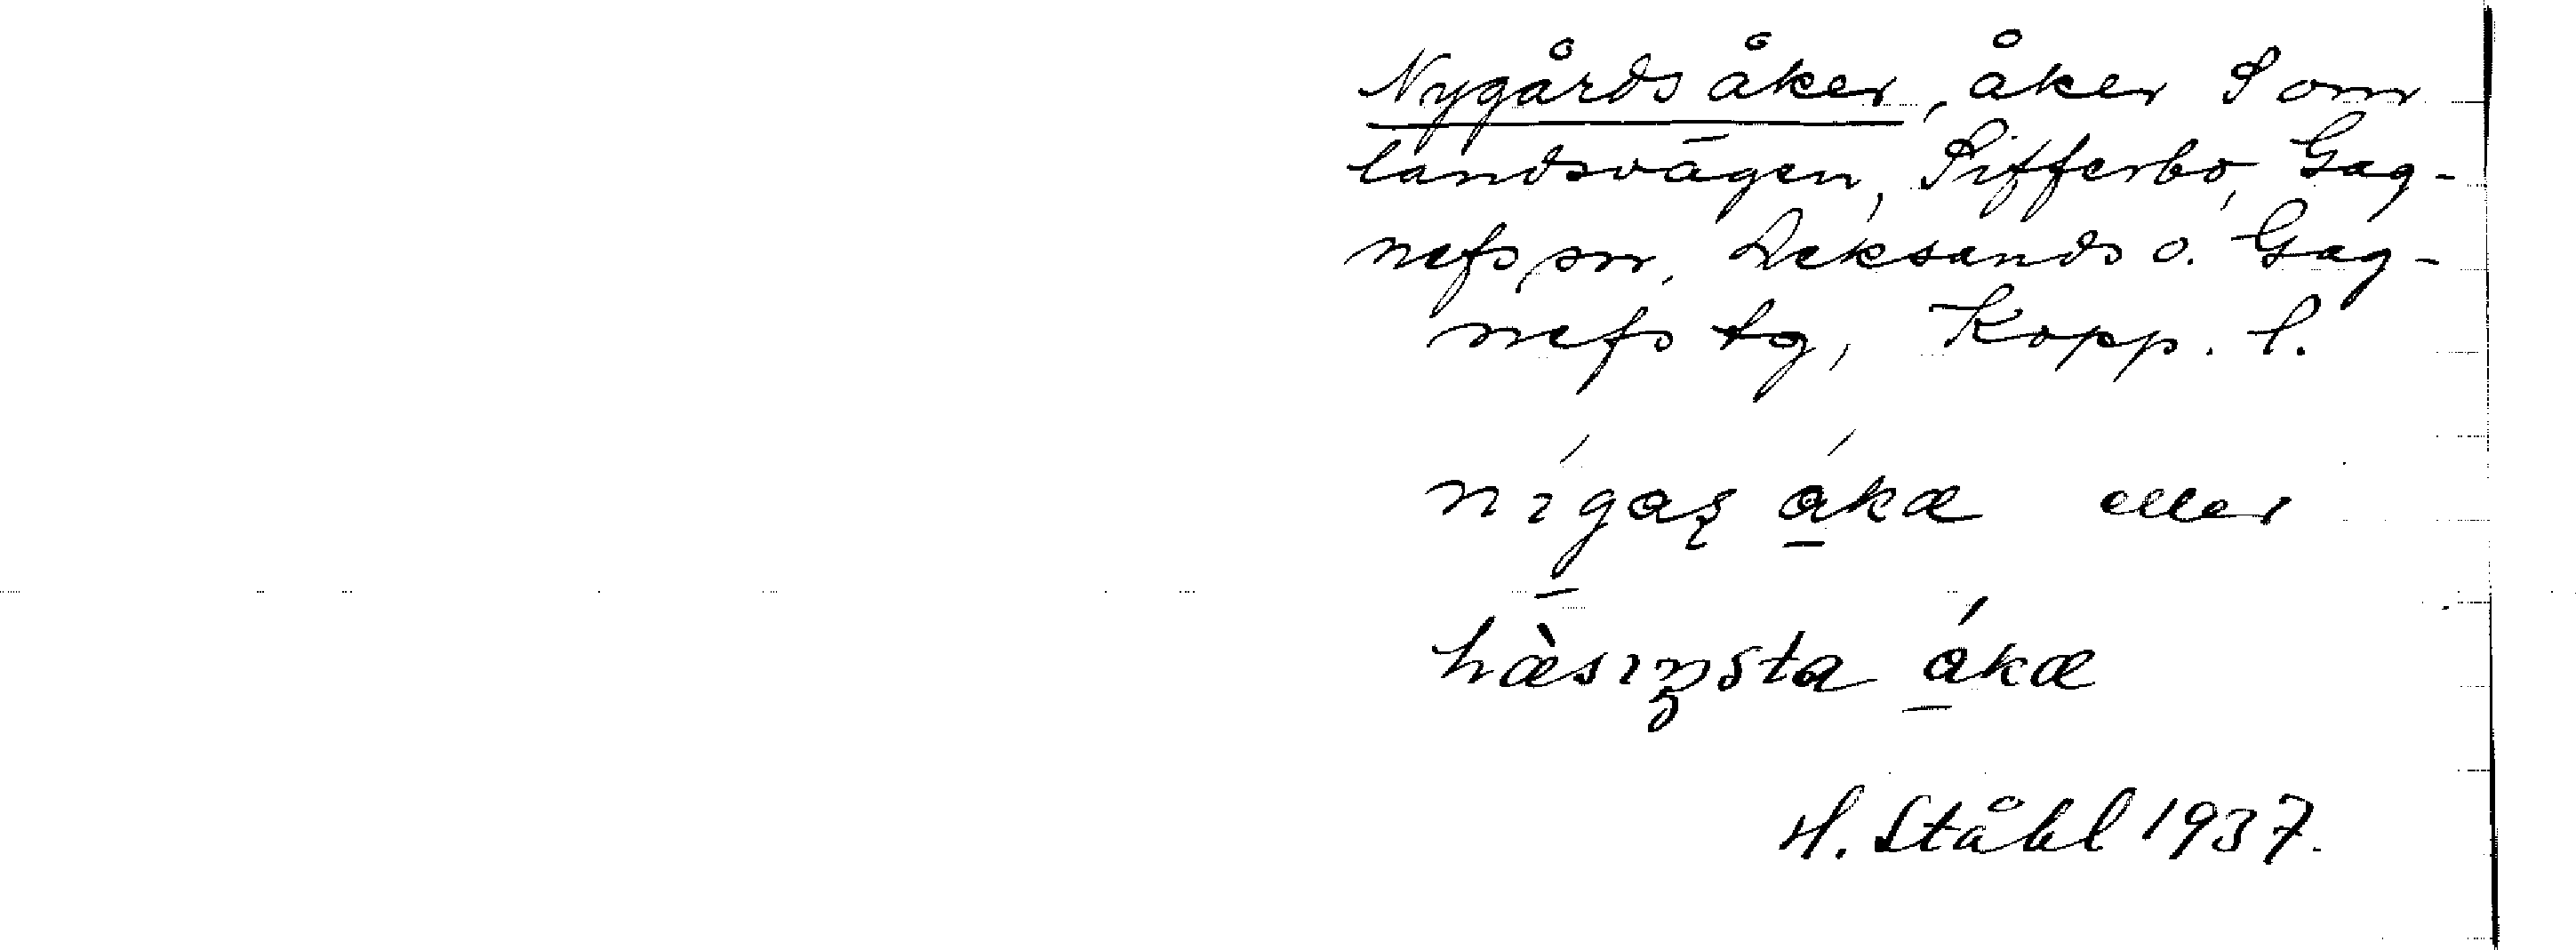 Nygårdsåker, åker S om
landsvägen, Sifferbo, Gag-
nefs sn, Leksands o. Gag-
nefs tg, Kopp. l.
nígaʂ ákæ eller
hæ̀sɪɳsta ákæ
H. Ståhl 1937.